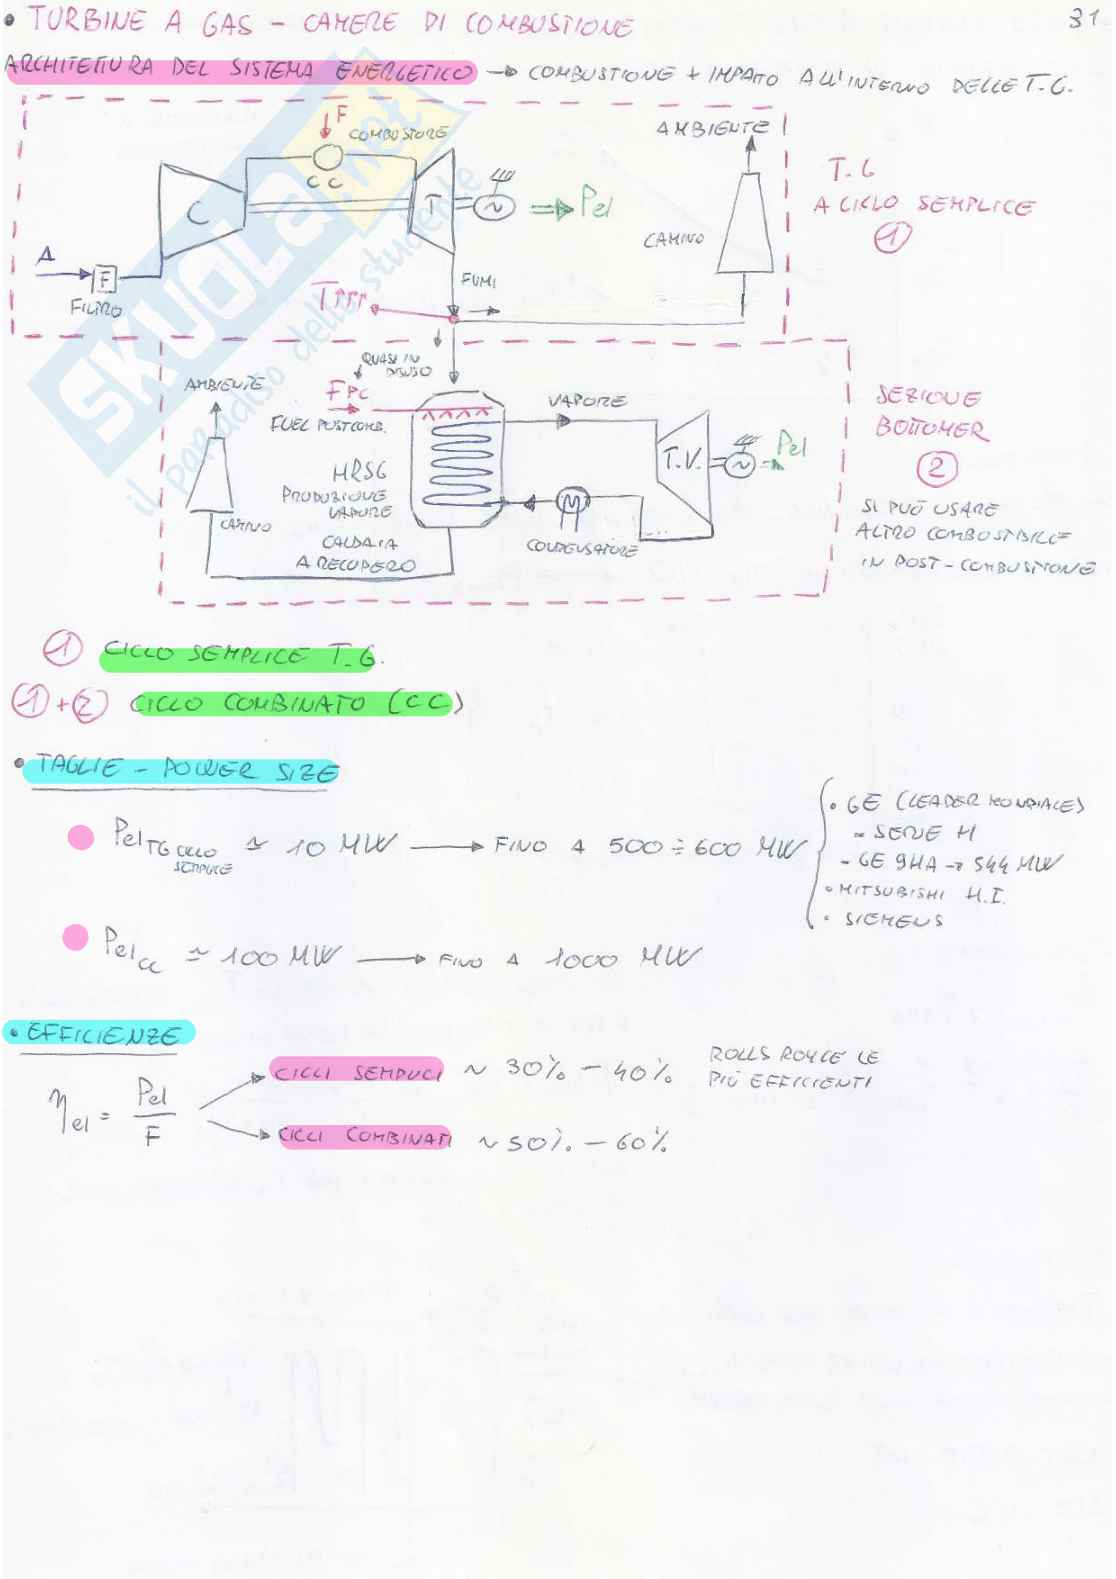 • TURBINE A GAS - CAMERE DI COMBUSTIONE
31
ARCHITETTURA DEL SISTEMA ENERGETICO → COMBUSTIONE + IMPATTO ALL'INTERNO DELLE T.G.
F
COMBUSTORE
CC
C
T
~
⇒ Pel
AMBIENTE
CAMINO
T.G
A CICLO SEMPLICE
1
A
F
FILTRO
FUMI
T↑↑↑
QUASI IN
DISUSO
AMBIENTE
FPC
FUEL POSTCOMB.
VAPORE
HRSG
PRODUZIONE
VAPORE
CALDAIA
A RECUPERO
T.V.
~
⇒ Pel
CAMINO
CONDENSATORE
SEZIONE
BOTTOMER
2
SI PUÒ USARE
ALTRO COMBUSTIBILE
IN POST-COMBUSTIONE
1 CICLO SEMPLICE T.G.
1 + 2 CICLO COMBINATO (CC)
• TAGLIE - POWER SIZE
Pel TG CICLO SEMPLICE ≃ 10 MW → FINO A 500 ÷ 600 MW
• GE (LEADER MONDIALE)
- SERIE H
- GE 9HA → 544 MW
• MITSUBISHI H.I.
• SIEMENS
Pel CC ≃ 100 MW → FINO A 1000 MW
• EFFICIENZE
ηel = Pel / F
CICLI SEMPLICI ~ 30% - 40%
ROLLS ROYCE LE
PIÙ EFFICIENTI
CICLI COMBINATI ~ 50% - 60%
SKUOLA.net
il paradiso dello studente